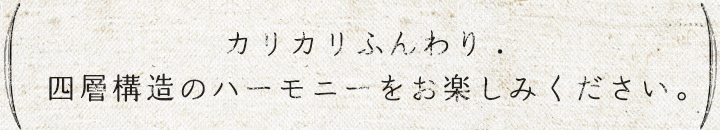 カリカリふんわり．
四層構造のハーモニーをお楽しみください。